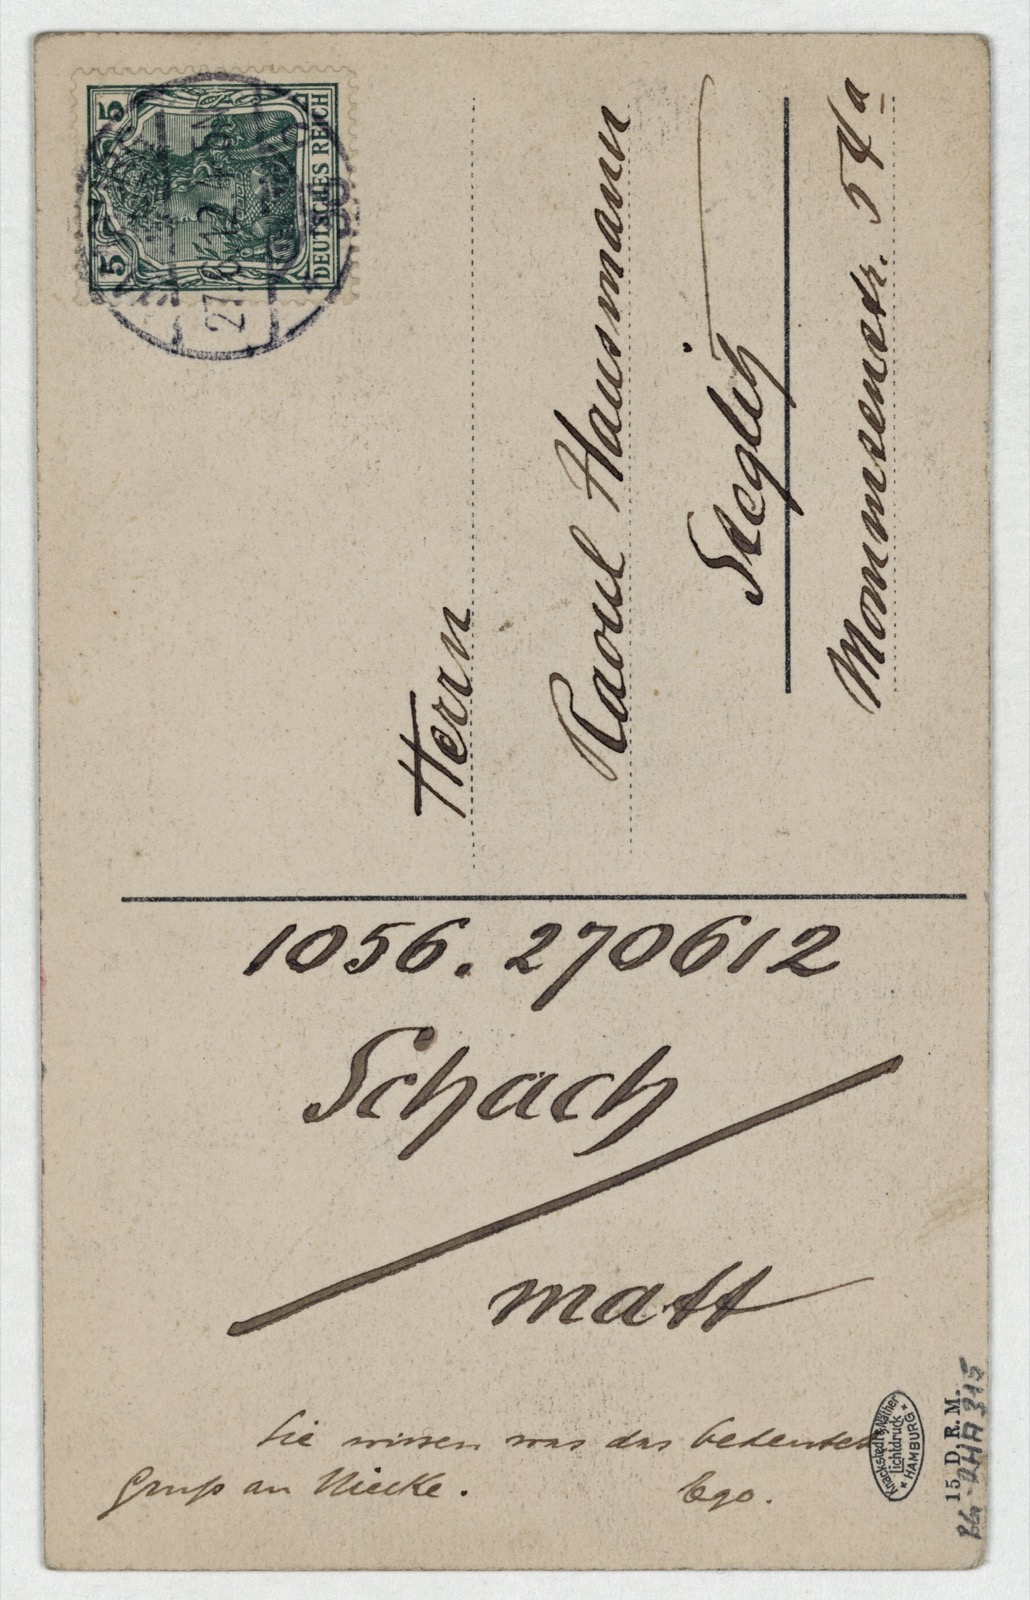 5 5
DEUTSCHES REICH
27.6.12.4-5N
Herrn
Raoul Hausmann
Steglitz
Mommsenstr. 54a
1056. 270612
Schach
/
matt
Sie wissen was das bedeutet
Gruß an Niecke.
Ego.
Knackstedt & Näther
Lichtdruck
HAMBURG
15 D. R. M.
315